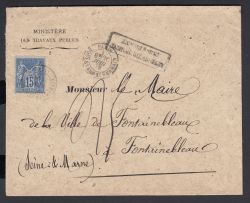 MINISTÈRE
DES TRAVAUX PUBLICS
15
Monsieur le Maire
de la Ville de Fontainebleau
à Fontainebleau
(Seine & Marne)